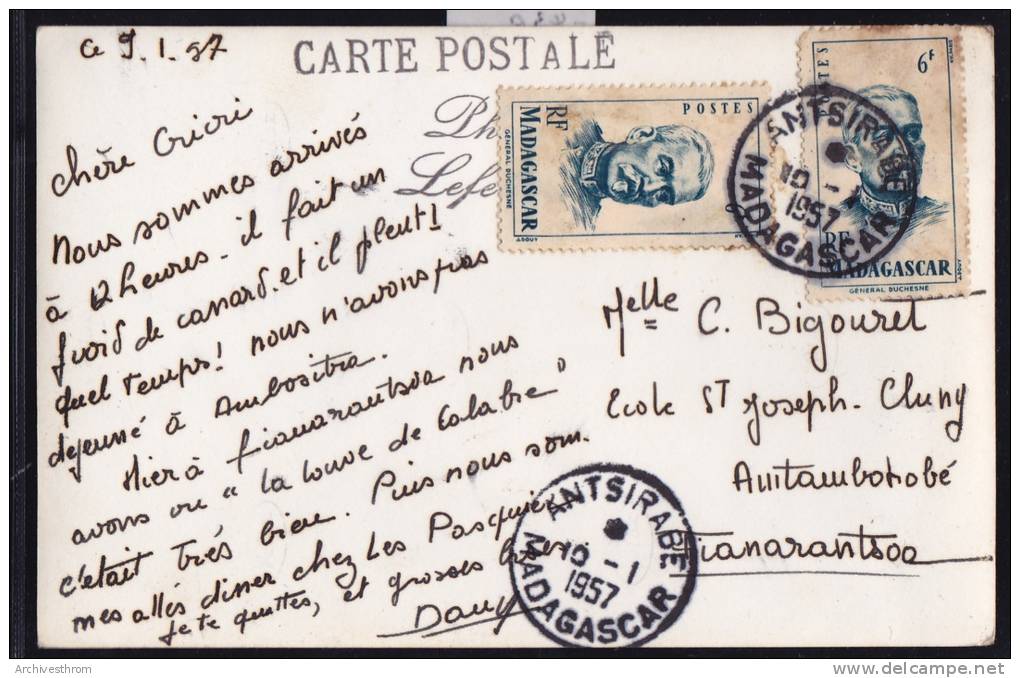 ce 9.1.57
CARTE POSTALE
Chère Cricri
Nous sommes arrivés
à 12 heures - il fait un
froid de canard. et il pleut!
quel temps! nous n'avons pas
dejeuné à Ambositra.
Hier à fianarantsoa nous
avons vu "la louve de Calabre"
c'était très bien. Puis nous som.
mes allés diner chez Les Pasquier
je te quittes, et grosses bises
Dany
Ph
Lefe
POSTES
RF
MADAGASCAR
GÉNÉRAL DUCHESNE
6F
POSTES
RF
MADAGASCAR
GÉNÉRAL DUCHESNE
ANTSIRABE
10 - 1
1957
MADAGASCAR
Melle C. Bigouret
Ecole St Joseph - Cluny
Fianarantsoa
ANTSIRABE
10 - 1
1957
MADAGASCAR
Archivesthrom
delcampe.net